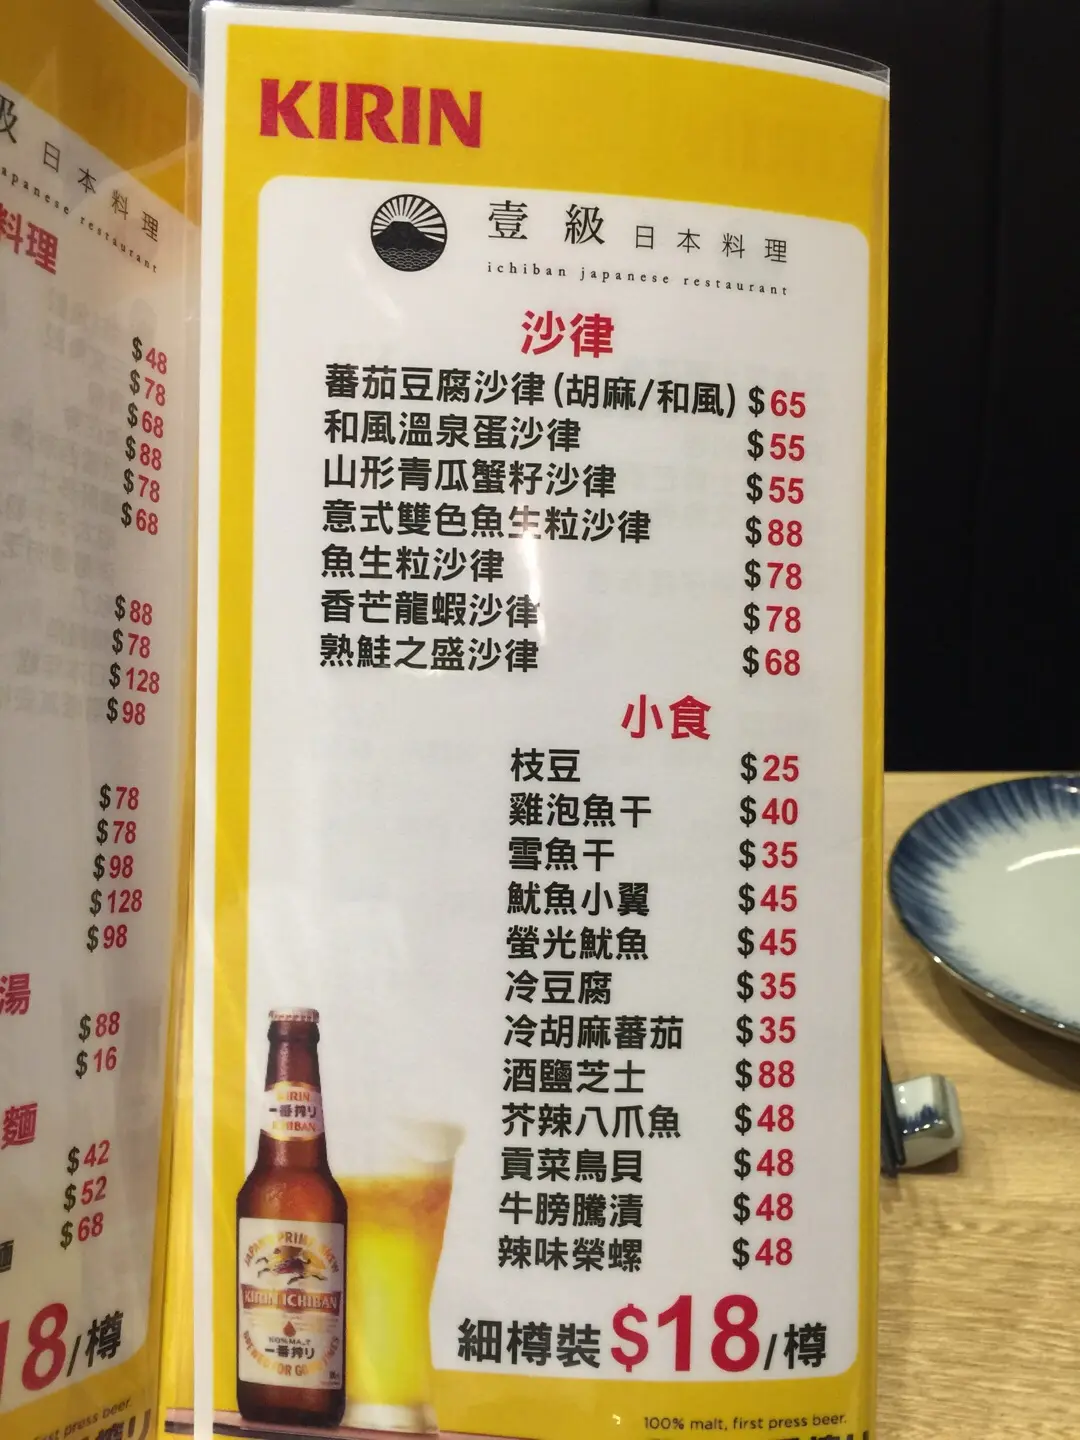 級 日本料理
japanese restaurant
料理
$48
$78
$68
$88
$78
$68
$88
$78
$128
$98
$78
$78
$98
$128
$98
湯
$88
$16
麵
$42
$52
$68
麵
18/樽
first press beer.
KIRIN
壹級 日本料理
ichiban japanese restaurant
沙律
蕃茄豆腐沙律(胡麻/和風) $65
和風溫泉蛋沙律 $55
山形青瓜蟹籽沙律 $55
意式雙色魚生粒沙律 $88
魚生粒沙律 $78
香芒龍蝦沙律 $78
熟鮭之盛沙律 $68
小食
枝豆 $25
雞泡魚干 $40
雪魚干 $35
魷魚小翼 $45
螢光魷魚 $45
冷豆腐 $35
冷胡麻蕃茄 $35
酒鹽芝士 $88
芥辣八爪魚 $48
貢菜鳥貝 $48
牛膀騰漬 $48
辣味榮螺 $48
KIRIN
一番搾り
ICHIBAN
KIRIN ICHIBAN
一番搾り
細樽裝 $18/樽
100% malt, first press beer.